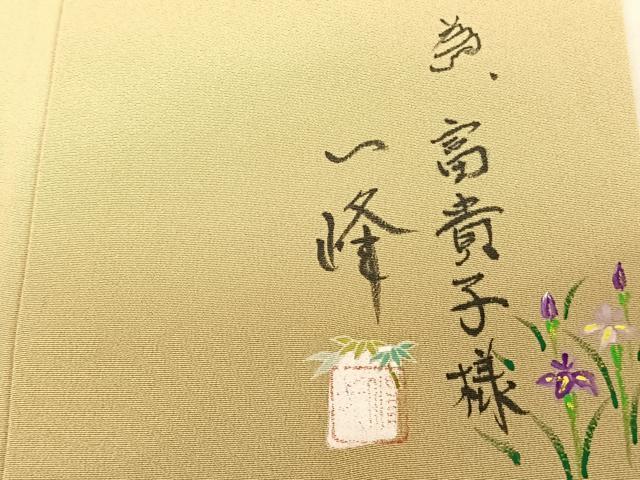 為、富貴子様
一峰